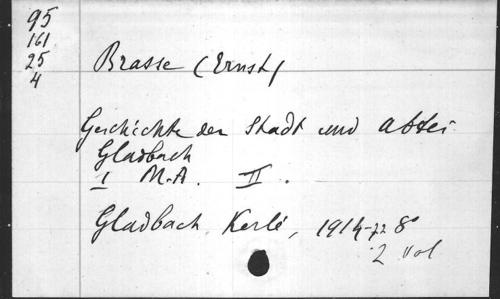 95
161
25
4
Brasse (Ernst)
Geschichte der Stadt und Abtei
Gladbach
I M.A. II.
Gladbach, Kerlé, 1914-22 8°
2 vol